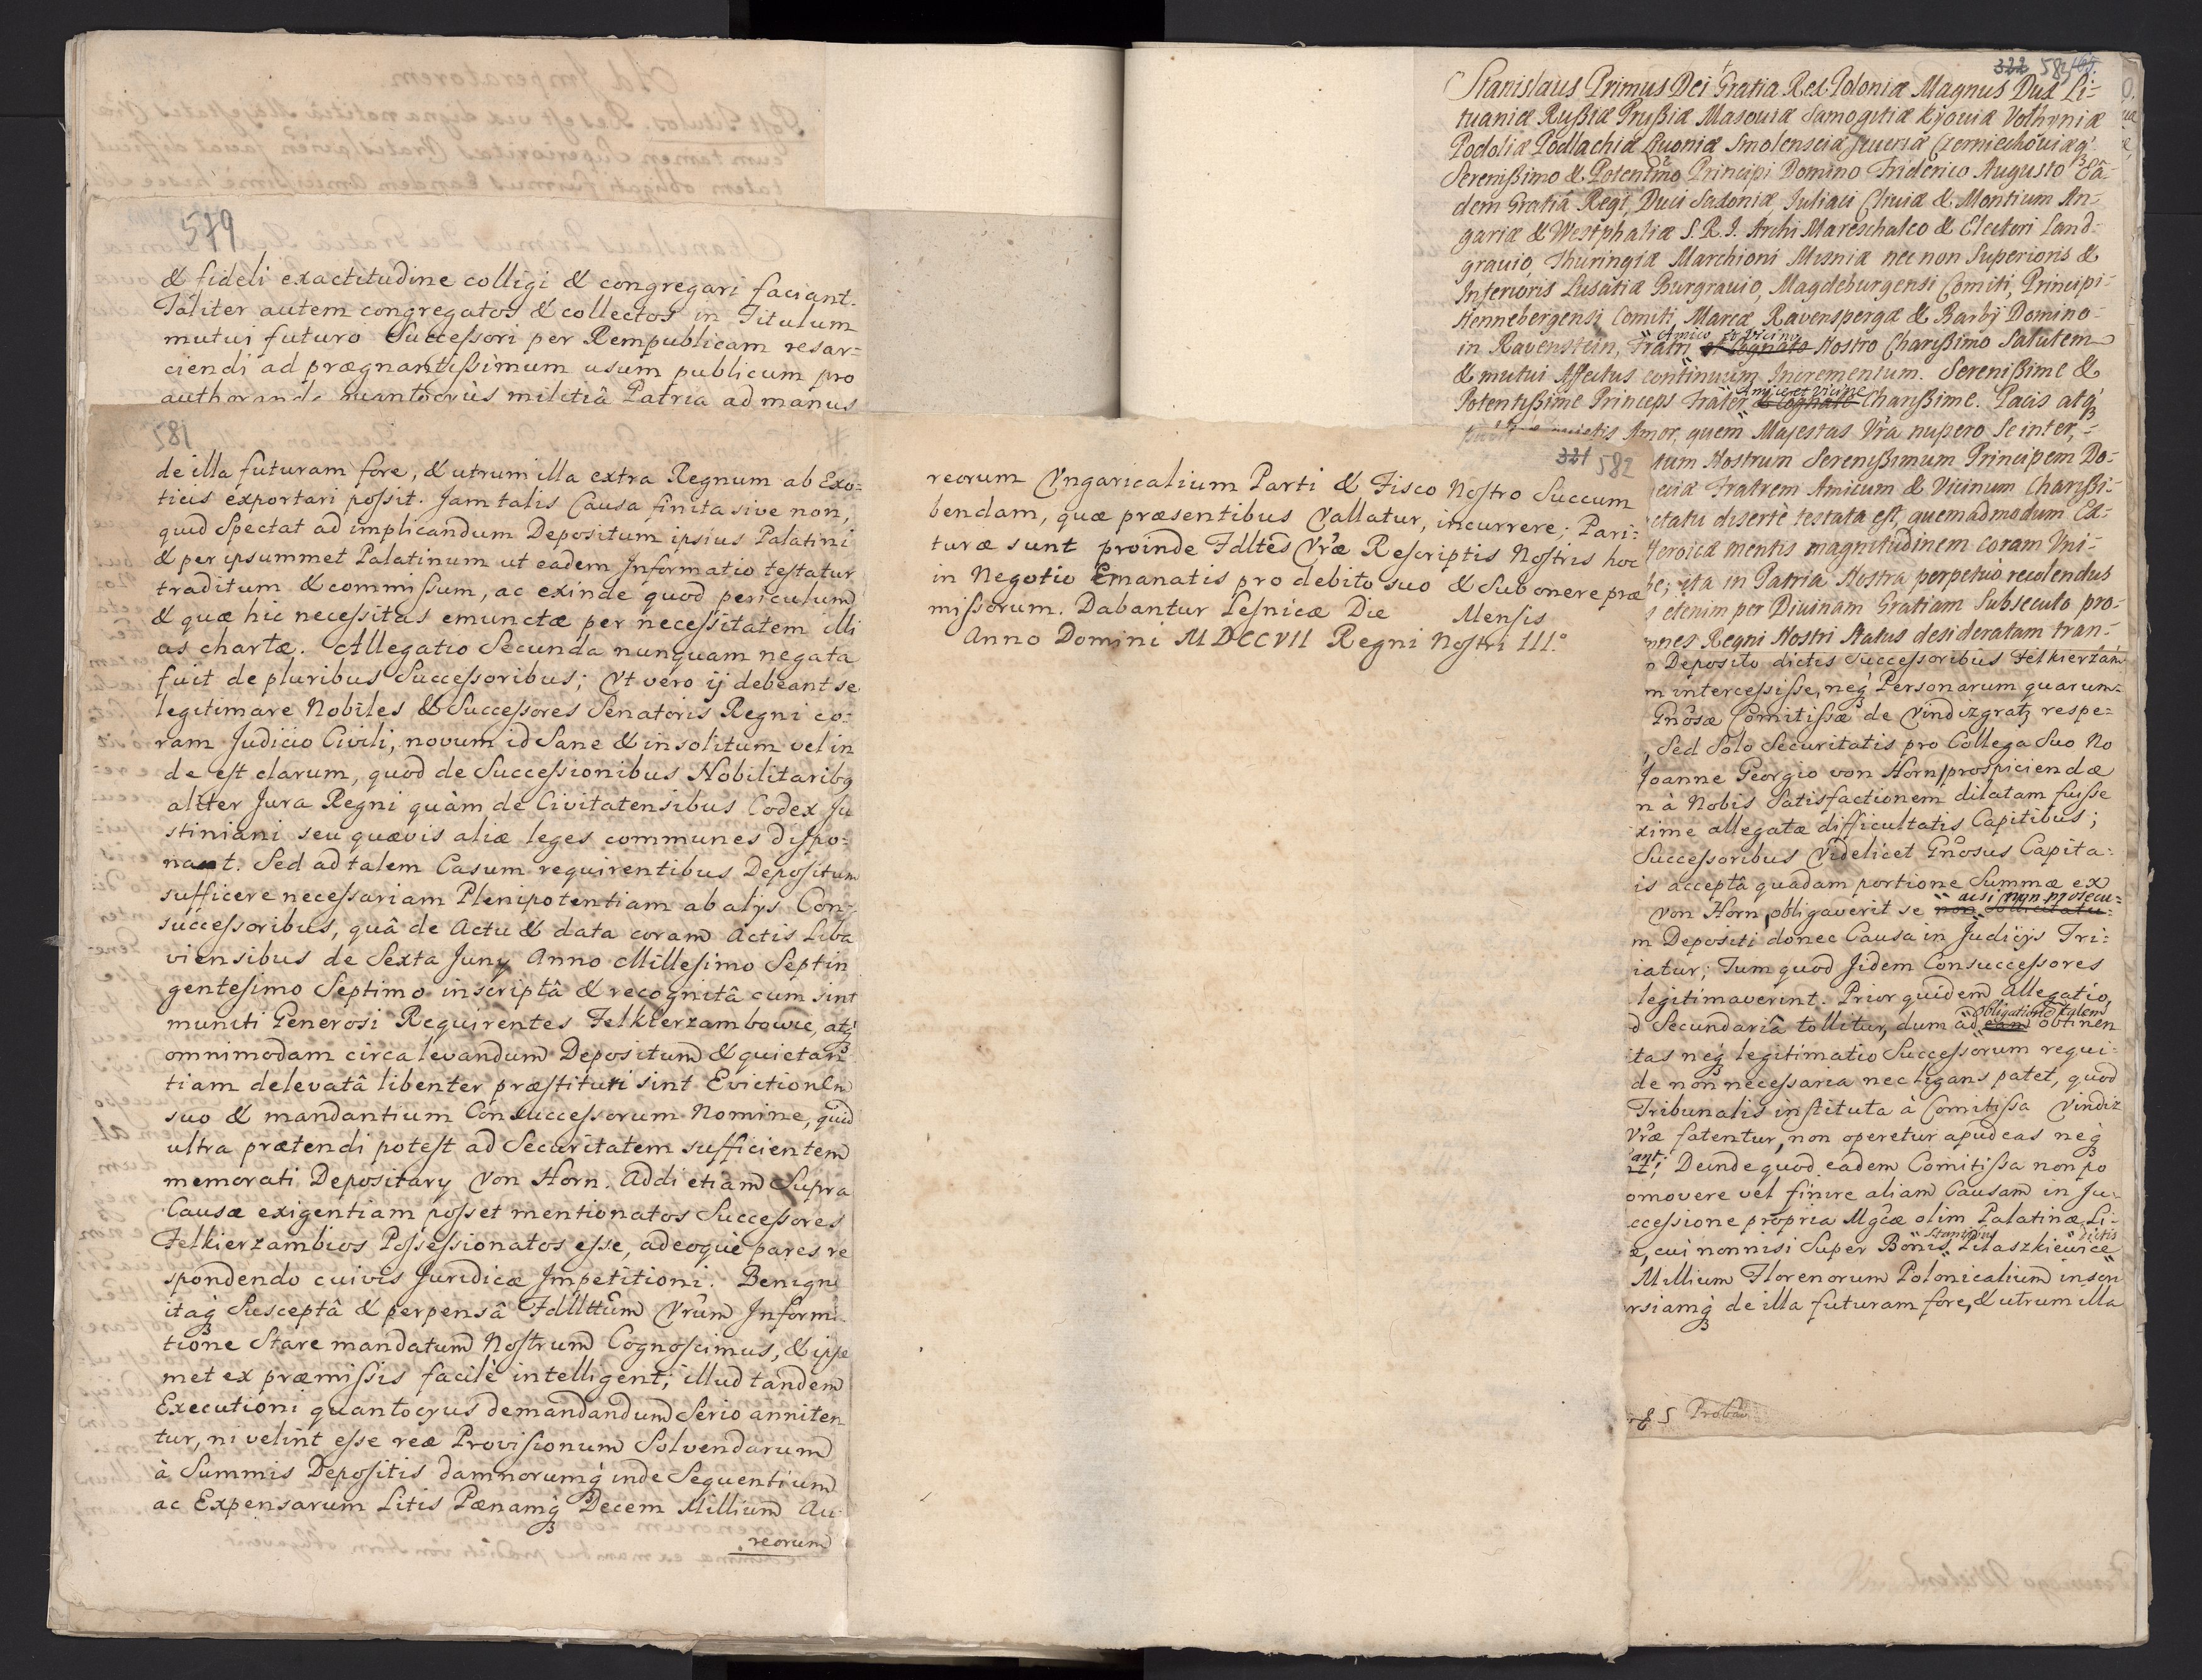 579
& fideli exactitudine colligi & congregari faciant.
Taliter autem congregatos & collectos in Titulum
mutui futuro Successori per Rempublicam resar-
ciendi ad prægnantissimum usum publicum pro
quantocyus militiâ Patria ad manus
581
de illa futuram fore, & utrum illa extra Regnum ab Exo-
ticis exportari possit. Jam talis Causa finita sive non,
quid Spectat ad implicandum Depositum ipsius Palatini
& per ipsummet Palatinum ut eadem Informatio testatur
traditum & commissum, ac exinde quod periculum
& quæ hic necessitas emunctæ per necessitatem illi
as chartæ. Allegatio Secunda nunquam negata
fuit de pluribus Successoribus; Ut vero ij debeant se
legitimare Nobiles & Successores Senatoris Regni co-
ram Judicio Civili, novum id Sane & insolitum vel in
de est clarum, quod de Successionibus Nobilitaribq
aliter Jura Regni quàm de Civitatensibus Codex Ju
stiniani seu quævis aliæ leges communes dispo-
nant. Sed ad talem Casum requirentibus Depositum
sufficere necessariam Plenipotentiam ab alijs Con-
successoribus, quâ de Actu & data coram Actis Liba
viensibus de Sexta Juny Anno Millesimo Septin
gentesimo Septimo inscriptâ & recognitâ cum sint
muniti Generosi Requirentes Felkierzambowie, atq
omnimodam circa levandum Depositum & quietan
tiam de levatâ libenter præstituri sint Evictionem
suo & mandantium Consuccessorum Nomine, quid
ultra prætendi potest ad Securitatem sufficientem
memorati Depositary Von Horn. Addi etiam Supra
Causæ exigentiam posset mentionatos Successores
Felkierzambios Possessionatos esse, adeoque pares re
spondendo cuivis Juridicæ Impetitioni. Benigne
itaq Susceptâ & perpensâ Fdllttum Vrûm Informa
tione Stare mandatum Nostrum Cognoscimus, & ipse
met ex præmissis facilè intelligent; illud tandem
Executioni quantocyus demandandum Serio anniten
tur, ni velint esse reæ Provisionum Solvendarum
à Summis Depositis damnorumq inde Sequentium
ac Expensarum Litis Pænamq Decem Millium Au
reorum
321 582
reorum Vngaricalium Parti & Fisco Nostro Succum
bendam, quæ præsentibus Vallatur, incurrere; Pari-
turæ sunt proinde Fdltes Vræ Rescriptis Nostris hoc
in Negotio Emanatis pro debito suo & Sub onere præ
missorum. Dabantur Lesnicæ Die Mensis
Anno Domini MDCCVII Regni Nostri III.º
322 583
Stanislaus Primus Dei Gratia Rex Poloniæ Magnus Dux Li-
tuaniæ Rußiæ Prußiæ Masouiæ Samogitiæ Kijouiæ Volhyniæ
Podoliæ Podlachiæ Liuoniæ Smolensciæ Seueriæ Czerniechouiæq
Serenißimo & Potentmo Principi Domino Friderico Augusto Eâ-
dem Gratiâ Regi, Duci Saxoniæ, Juliaci Cliuiæ & Montium An-
gariæ & Westphaliæ S. R. I. Archi Mareschalco & Electori Land-
grauio Thuringiæ Marchioni Misniæ nec non Superioris &
Inferioris Lusatiæ Burgrauio, Magdeburgensi Comiti, Principi-
Hennebergensi Comiti Marcæ Ravenspergæ & Barbij Domino-
Amico et Vicino
in Ravenstein, Fratri et Cognato Nostro Charißimo Salutem
& mutui Affectus continuum Incrementum. Serenißime &
Amice et Vicine
Potentißime Princeps Frater & Cognate Charißime. Pacis atq
quietis Amor, quem Majestas Vra nupero Se inter,-
tum Nostrum Serenißimum Principem Do-
Fratrem Amicum & Vicinum Charißi-
diserte testata est, quemadmodum Ea-
Heroicæ mentis magnitudinem coram Vni-
ita in Patria Nostra perpetuo recolendus
etenim per Divinam Gratiam Subsecuto pro-
Regni Nostri Status desideratam tran-
Deposito dictis Successoribus Felkierzam
m intercessisse, neq Personarum quarum-
Gnosæ Comitissæ de Vindizgratz respe-
, Sed Solo Securitatis pro Collega Suo No
Joanne Georgio von Horn prospiciendæ
n à Nobis Satisfactionem dilatam fuisse
xime allegatæ difficultatis Capitibus;
Successoribus Videlicet Gnosus Capita-
is acceptâ quâdam portione Summæ ex
nisi non prosecu-
Von Horn obligaverit se non
m Depositi donec Causa in Judicijs Tri-
iatur; Tum quod Jidem Consuccessores
legitimaverint. Prior quidem Allegatio,
obligationem talem
d Secundariâ tollitur, dum ad eam obtinen
itas neq legitimatio Successorum requi-
de non necessaria nec ligans patet, quod
Tribunalis instituta à Comitissa Vindiz
Vræ fatentur, non operetur apud eas neq
ant; Deinde quod eadem Comitissa non po
omovere vel finire aliam Causam in Ju-
ccessione propria Mgcæ olim Palatinæ Li-
dictis
æ, cui nonnisi Super Bonis Litaszkiewice
Millium Florenorum Polonicalium inscri
rsiamq de illa futuram fore, & utrum illa